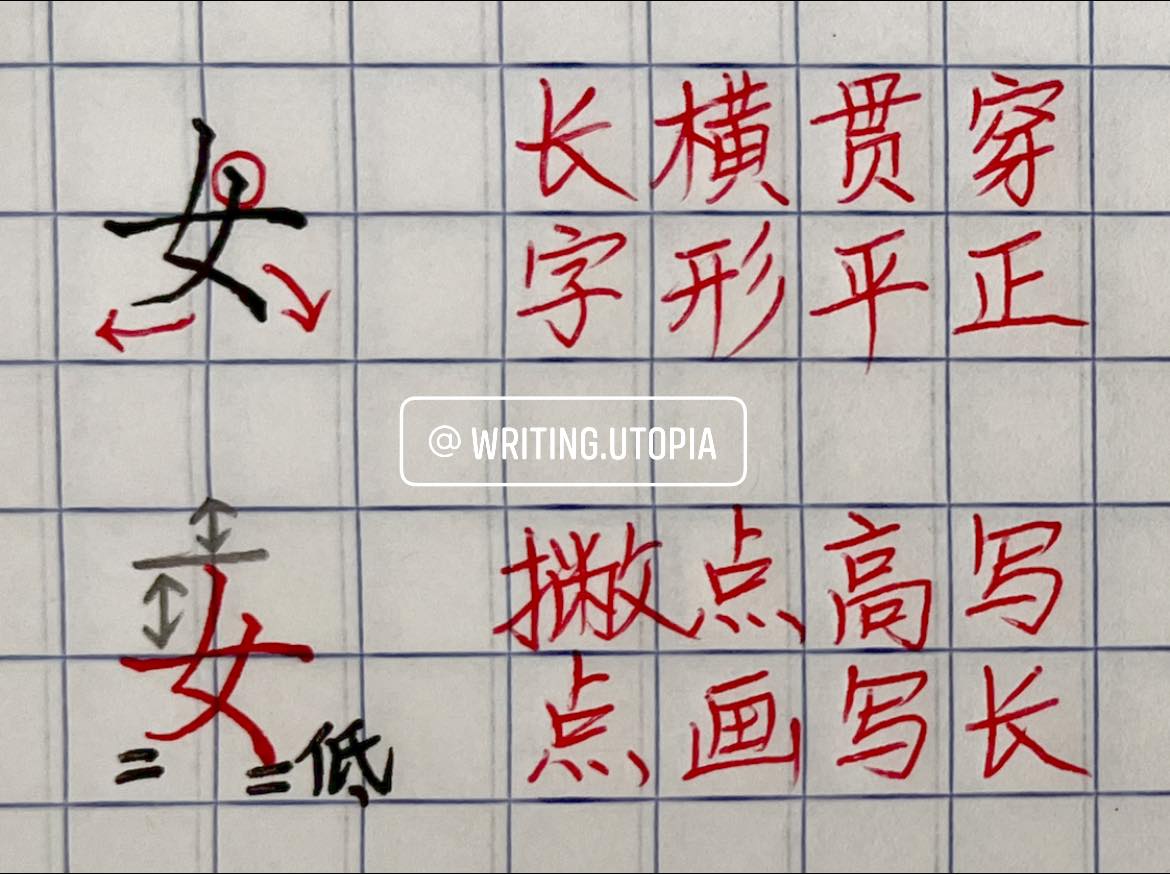 女 长横贯穿
字形平正
@ WRITING.UTOPIA
女 撇点高写
点画写长
= = 低